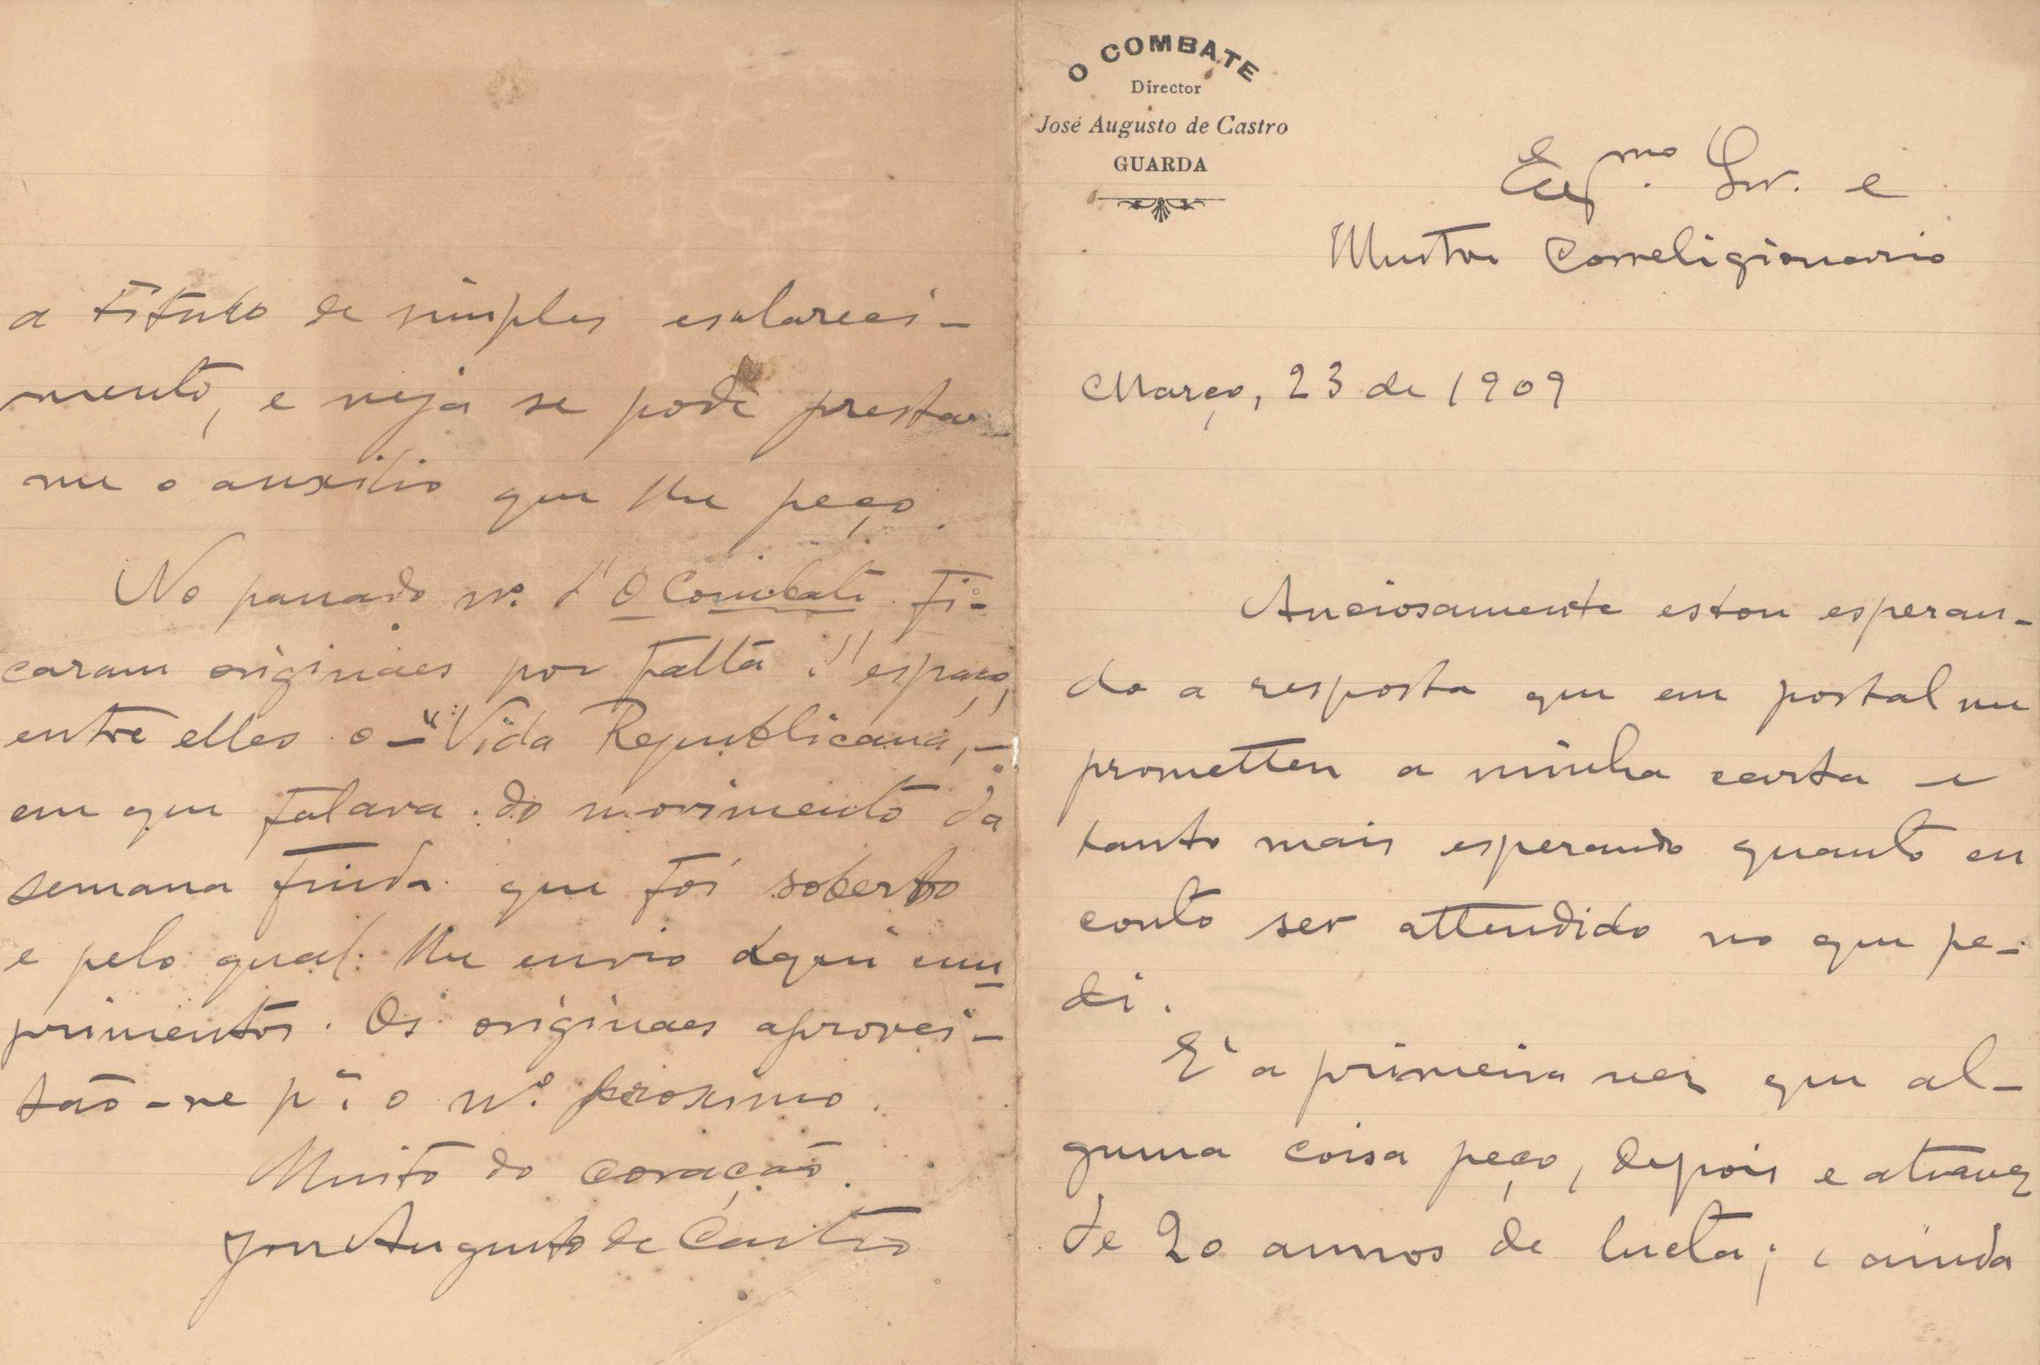 O COMBATE
Director
José Augusto de Castro
GUARDA
Ex.mo Sr. e
Illustre Correligionario
Março, 23 de 1909
Anciosamente estou esperan-
do a resposta que em postal me
prometteu a minha carta e
tanto mais esperando quanto eu
conto ser attendido no que pe-
di.
E' a primeira vez que al-
guma coisa peço, depois e atravez
de 20 annos de lucta; e ainda
a titulo de simples esclareci-
mento, e veja se pode prestar
me o auxilio que lhe peço.
No passado nº. d'O Combate fi-
caram originaes por falta d'espaço,
entre elles o - "Vida Republicana, -
em que falava do movimento da
semana finda que foi soberbo
e pelo qual lhe envio aqui cum
primentos. Os originaes aprovei-
tão-se pª. o nº. proximo.
Muito do coração.
José Augusto de Castro